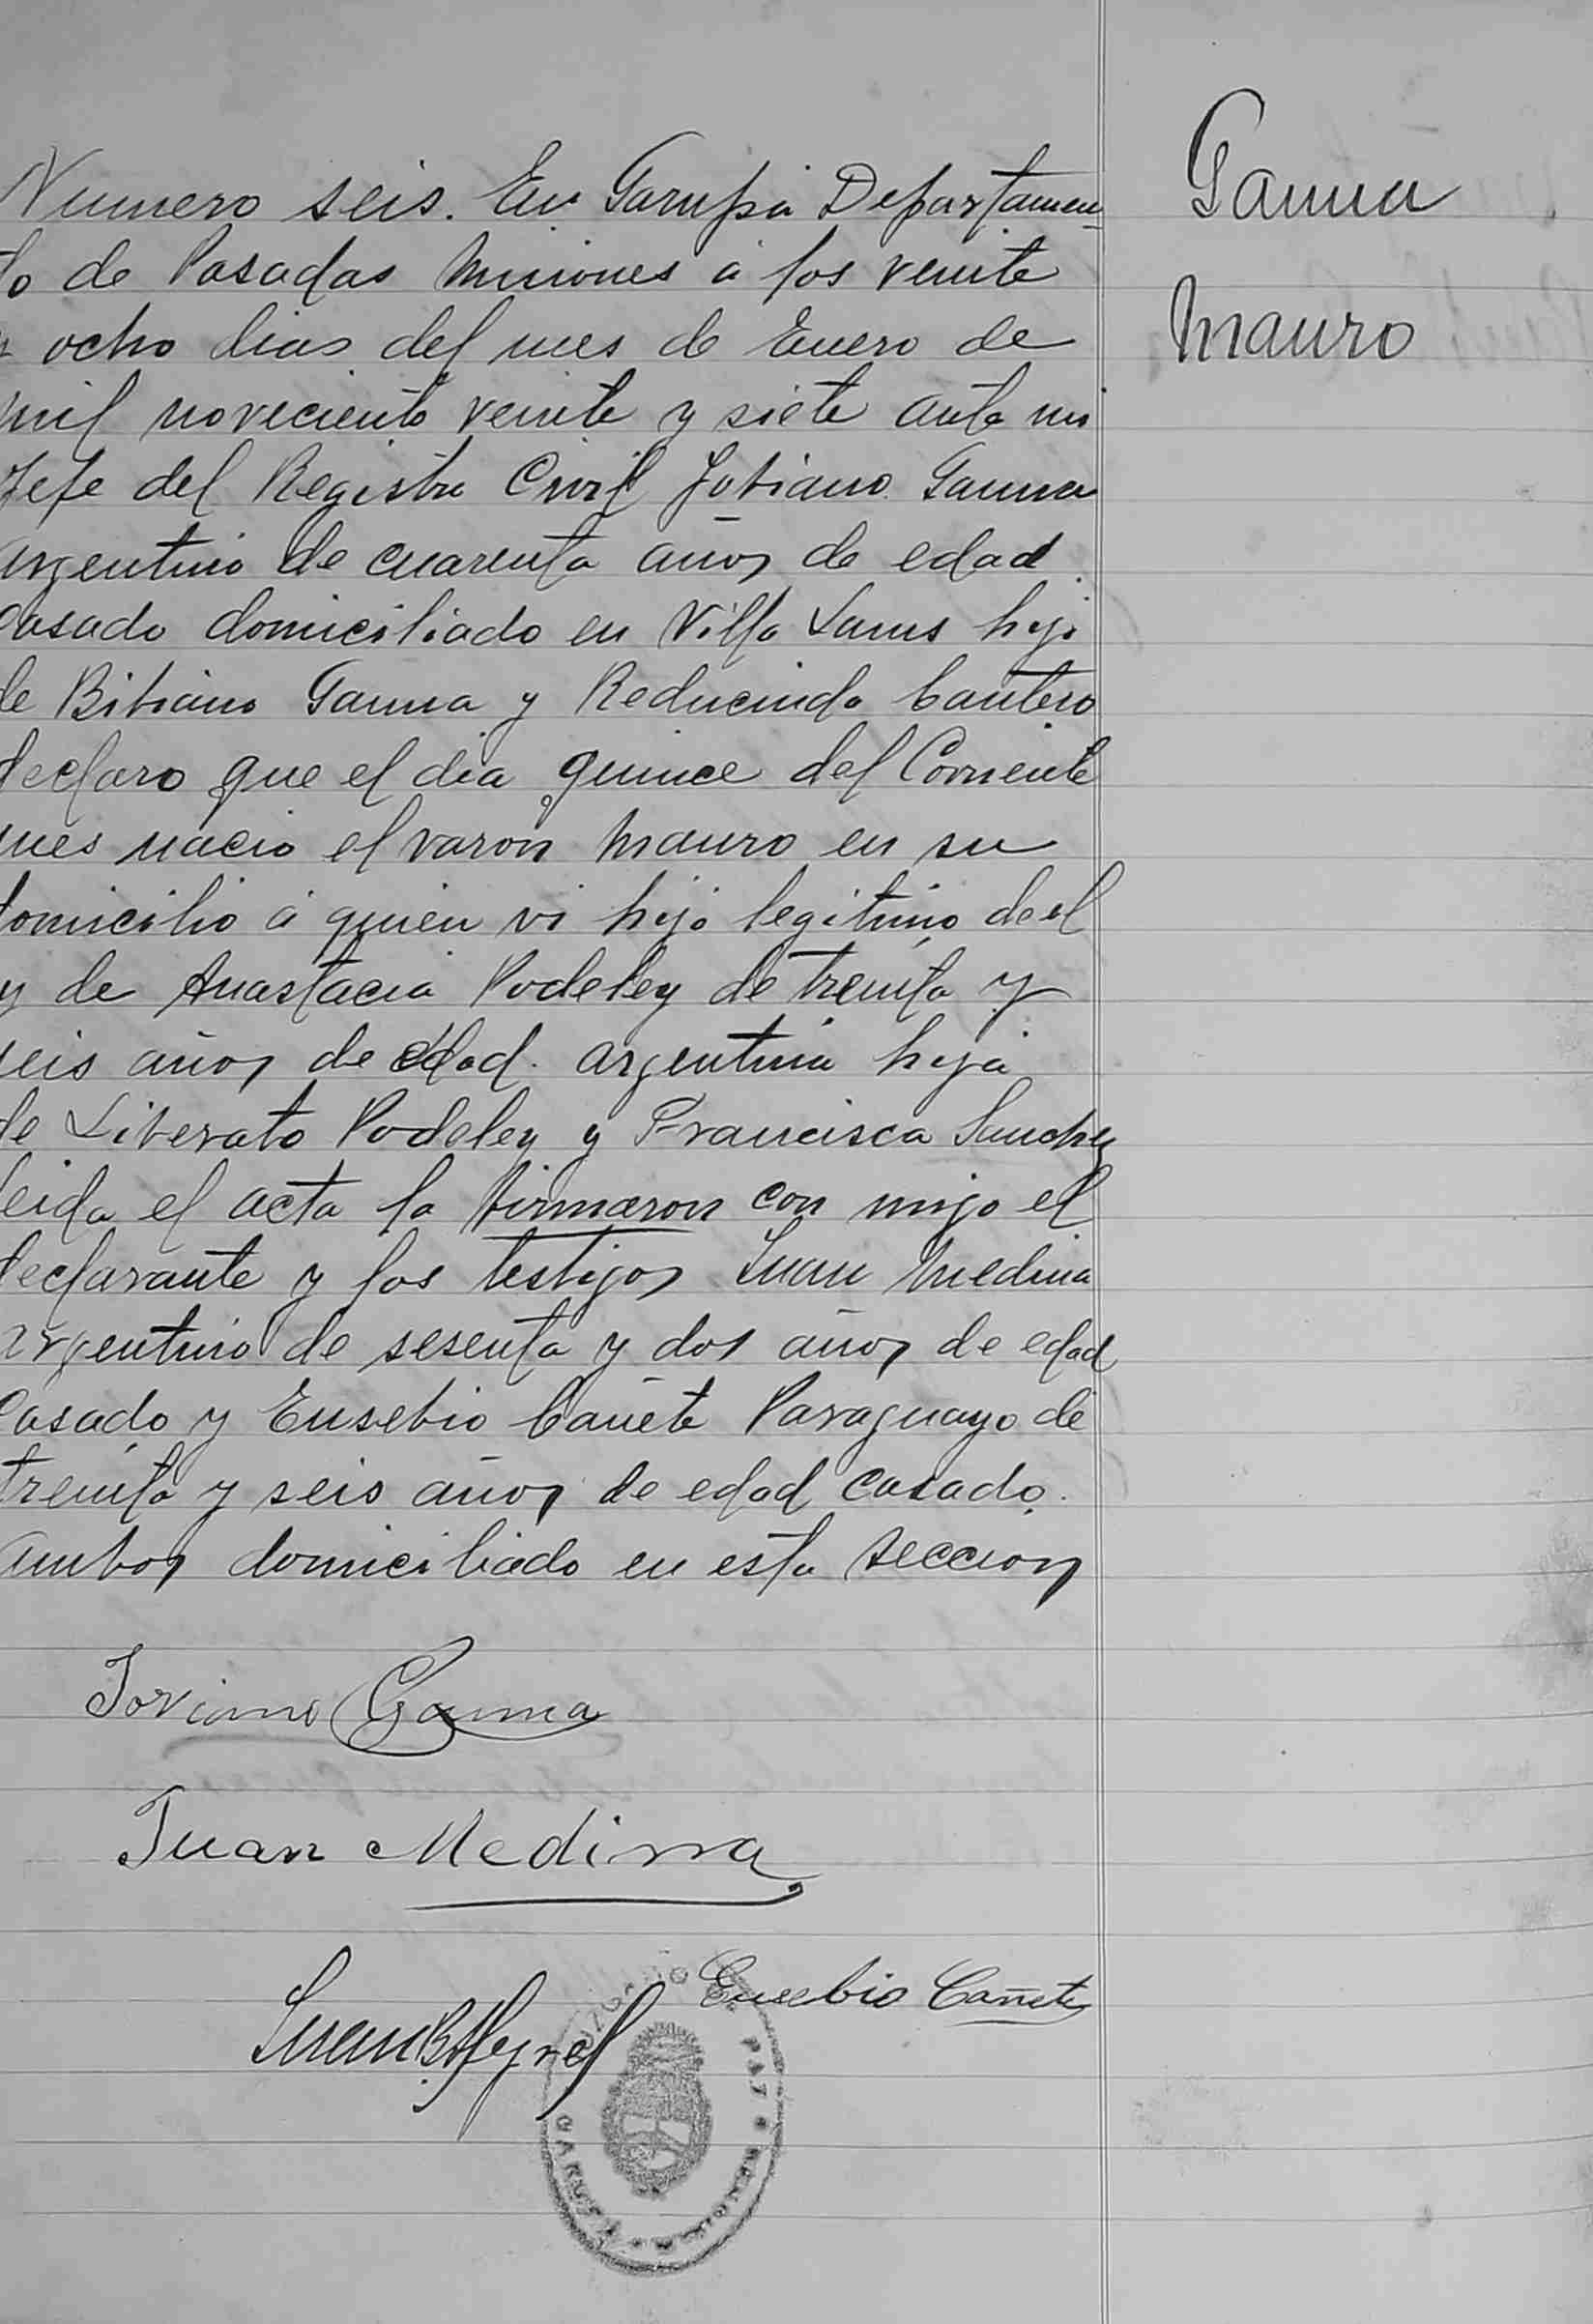 Ganna
Mauro
Numero seis. En Garupa Departamen
to de Posadas Misiones a los veinte
y ocho dias del mes de Enero de
mil noveciento veinte y siete ante mi
Jefe del Registro Civil Jobiano Ganna
argentino de cuarenta años de edad
casado domiciliado en Villa Lanus hijo
de Bibiano Ganna y Reducinda Cantero
declaro que el dia quince del Corriente
mes nacio el varon Mauro en su
domicilio a quien vi hijo legitimo de el
y de Anastacia Podeley de treinta y
seis años de edad. argentina hija
de Liberato Podeley y Francisca Sanchez
leida el acta la firmaron con migo el
declarante y los testigos Juan Medina
argentino de sesenta y dos años de edad
casado y Eusebio Cañete Paraguayo de
treinta y seis años de edad casado.
ambos domiciliado en esta seccion
Joviano Ganna
Juan Medina
Eusebio Cañete
Juan B
PAZ
GARUPA